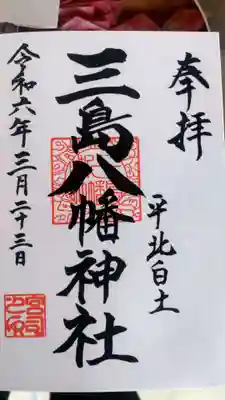 奉拝
平北白土
三島八幡神社
令和六年三月二十三日